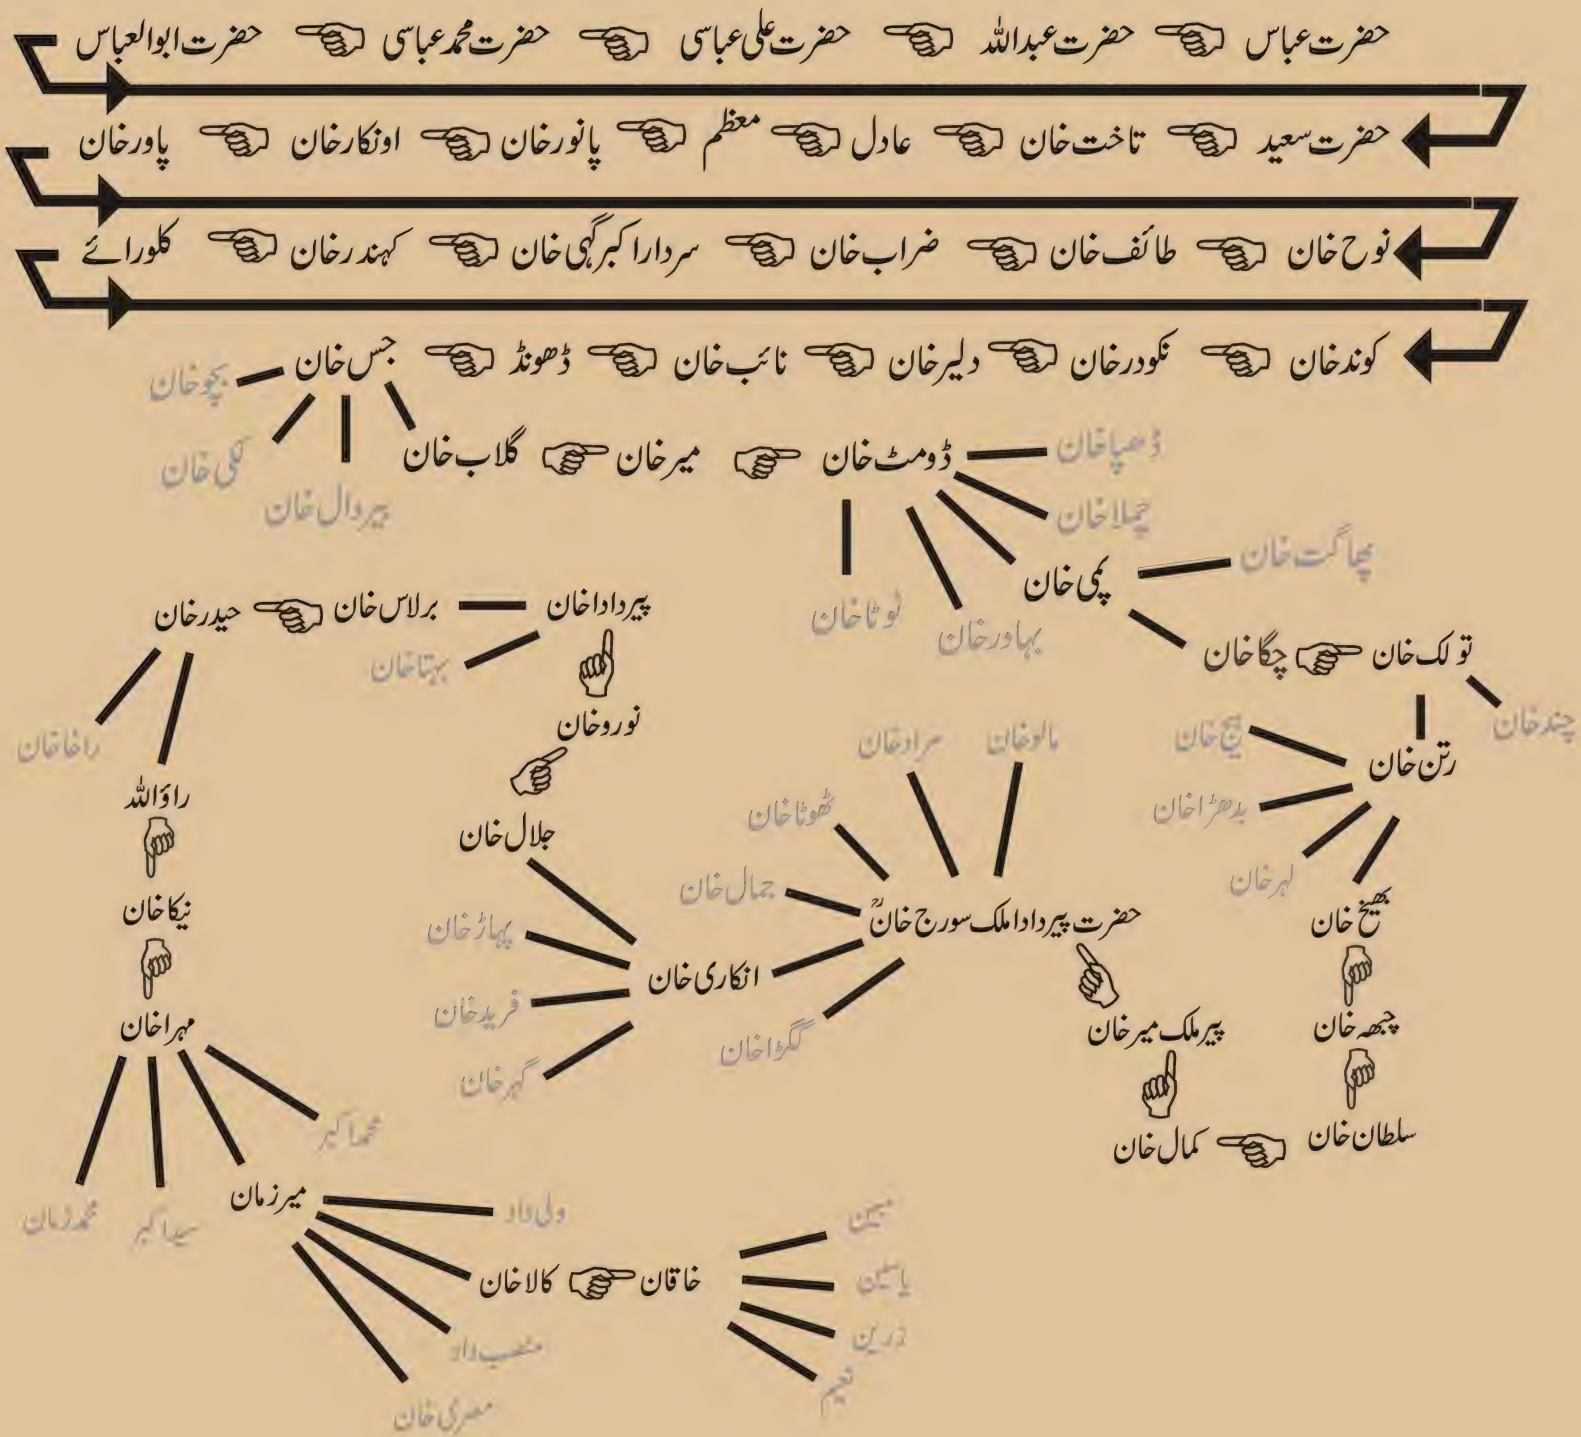 حضرت عباس حضرت عبداللہ حضرت علی عباسی حضرت محمد عباسی حضرت ابوالعباس
حضرت سعید تاخت خان عادل معظم پانور خان اونکار خان پاور خان
نوح خان طائف خان ضراب خان سردار اکبر گہی خان کہندر خان کلورائے
کوند خان نکودر خان دلیر خان نائب خان ڈھونڈ جس خان
بچو خان
لکی خان
پیر دال خان
گلاب خان میر خان ڈومٹ خان ڈھپا خان
چملا خان
پمی خان چھاگت خان
ٹوٹا خان بہادر خان
تولک خان چگا خان
چند خان
رتن خان
بدھڑا خان
لہر خان
بھیخ خان
چبھہ خان
سلطان خان کمال خان
پیر ملک میر خان
حضرت پیر دادا ملک سورج خانؒ
مالو خان مراد خان
ٹھوٹا خان
جمال خان
گکڑا خان
انکاری خان
پہاڑ خان
فرید خان
گہر خان
جلال خان
نورو خان
پیر دادا خان برلاس خان حیدر خان
بہتا خان
راخا خان
راؤ اللہ
نیکا خان
مہرا خان
محمد اکبر
میر زمان
سید اکبر
محمد زمان
ولی داد
کالا خان خاقان
منصب داد
مصری خان
مبین
یاسین
زرین
نعیم